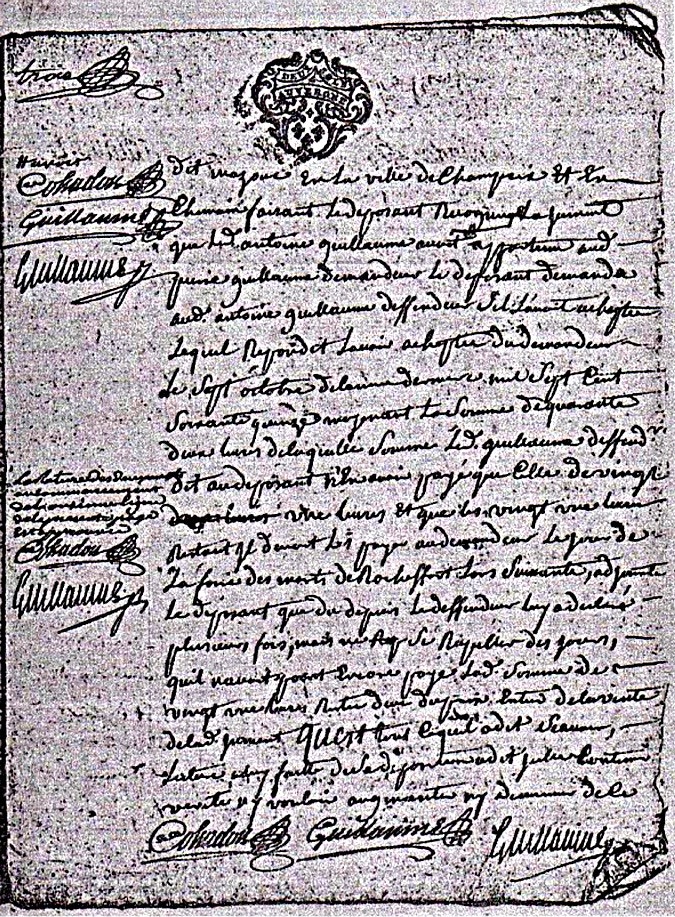 trois
DEUX
AUVERGNE
Cohadon
Guillaume
Guillaume
dit mazeux En La ville de Champeix Et En
Chemin faisant Le deposant la jument
que Led. antoine guillaume avoit appartenu aud.
pierre guillaume demandeur Le deposant demanda
aud. antoine guillaume deffendeur Sil Lavoit achepté
Lequel Repondit Lavoir acheptée du demandeur
Le Sept octobre de Lannée derniere mil Sept Cent
Soixante quinze moyenant La Somme de quarante
deux Livres de laquelle Somme Led. guillaume deffendr
dit au deposant nen avoir payé que Celle de vingt
une Livres Et que Les vingt une Livres
Restant il devoit Les payer au demandeur Le jour de
La foire des morts de Rocheffort Lors Suivante, adjoute
Le deposant que du depuis Le deffendeur Luy a declaré
plusieurs fois, mais ne se Rapeller des jours,
quil navoit point Encore payé Lad. Somme de
vingt une Livres Restes du prix Entier de la vente
de lad. jument quest tout Ce quil a dit Scavoir,
Lecture a luy faite de Sa deposition a dit quelle Contient
verité ny vouloir augmenter ny diminuer de Le
Cohadon
Guillaume
Cohadon Guillaume Guillaume